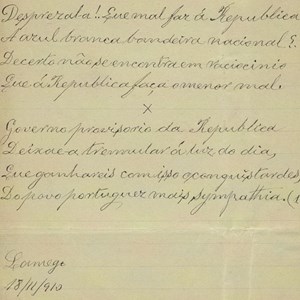 Desprezal-a!.. Que mal faz á Republica
A azul branca bandeira nacional?
Decerto não se encontra em raciocinio
Que á Republica faça o menor mal.
×
Governo provisorio da Republica
Deixae-a tremular á luz do dia,
Que ganhareis com isso e conquistardes,
Do povo portuguez mais sympathia. (
Lamego
18/11/910